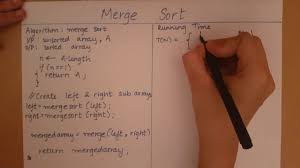 Merge Sort
Algorithm: merge sort
I/P: unsorted array, A
O/P: sorted array
n ← A·length
if (n==1)
{ return A;
}
// Create left & right sub arrays
left = mergesort (left);
right = mergesort (right);
mergedarray = merge (left, right)
return mergedarray;
Running Time
T(n) = {